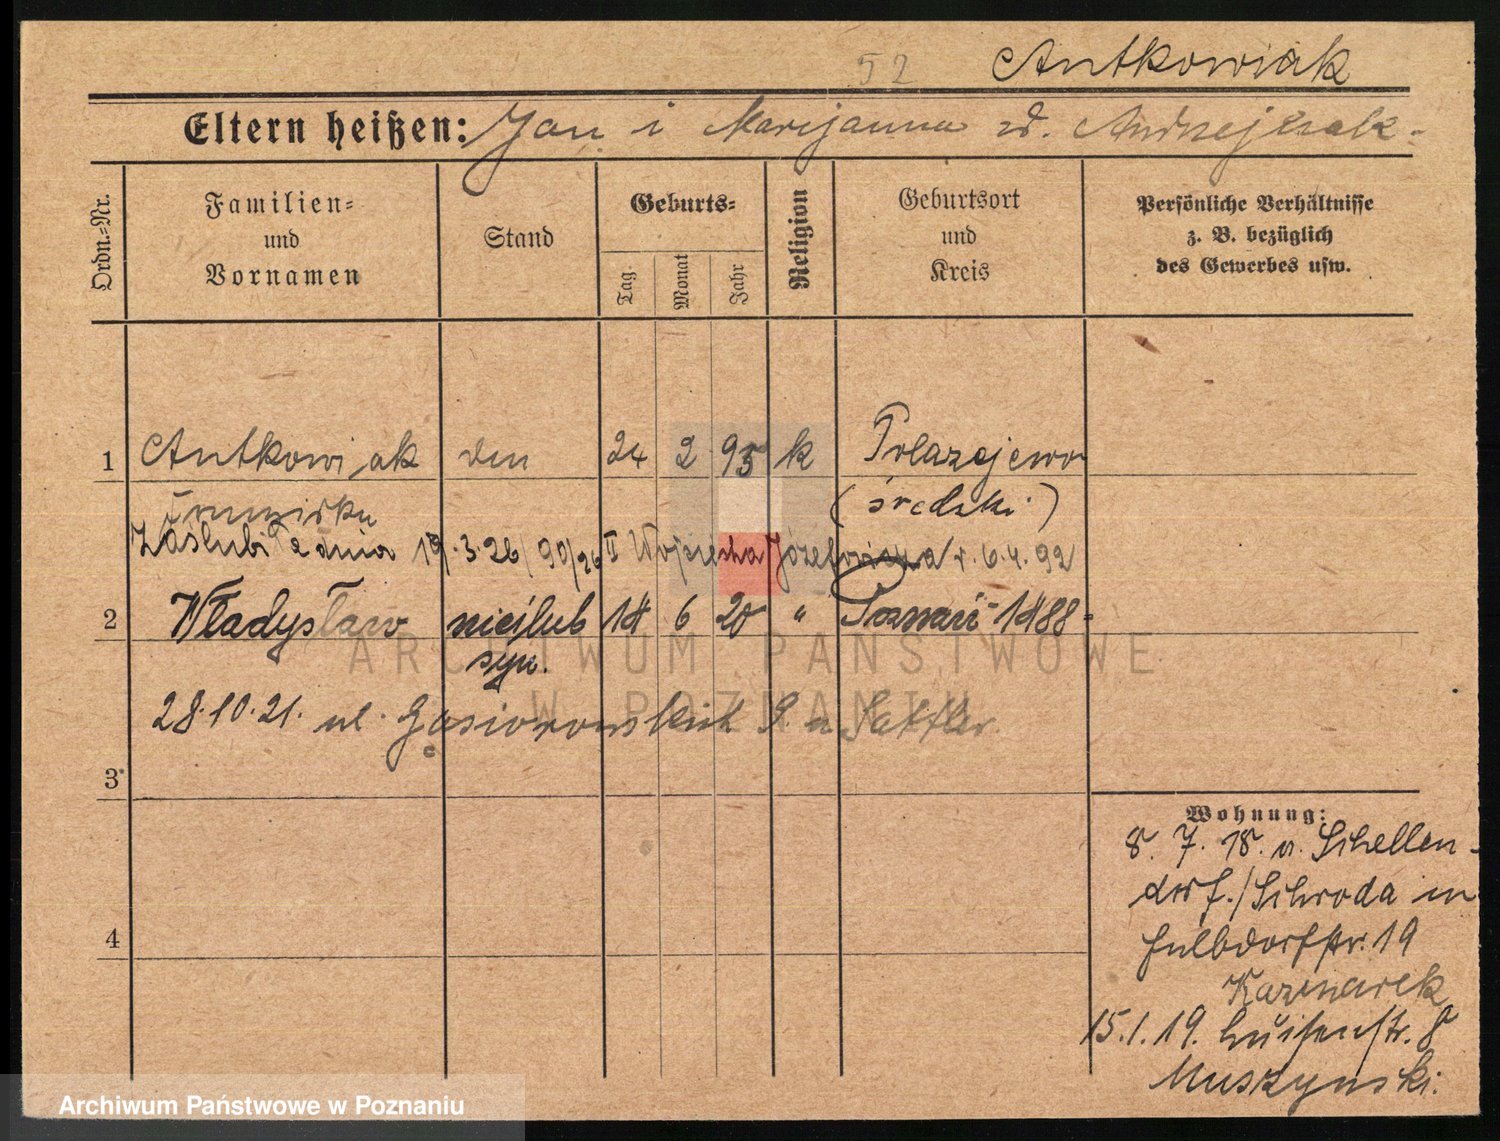 52 Antkowiak
Eltern heißen: Jan i Marijanna Andrzejczak
Ordn.-Nr.
Familien-
und
Vornamen
Stand
Geburts-
Tag
Monat
Jahr
Religion
Geburtsort
und
Kreis
Persönliche Verhältnisse
z. B. bezüglich
des Gewerbes usw.
1 Antkowiak 24 2 95 k Polazejewo
(średzki)
Zaślubi z dnia 19.3.26 / 90/26 II Wojciecha Józefowicza r. 6.4.92
2 Władysław nieślub 14 6 20 " Poznań - 1488
syn.
28.10.21. ul. Gąsiorowskich 9. u Sattler
3
4
Wohnung:
8. 7. 18. v. Schellen-
dorf./Schroda in
19
Kazmarek
15.1.19. Luisenstr. 8
Muszynski.
ARCHIWUM PAŃSTWOWE
W POZNANIU
Archiwum Państwowe w Poznaniu